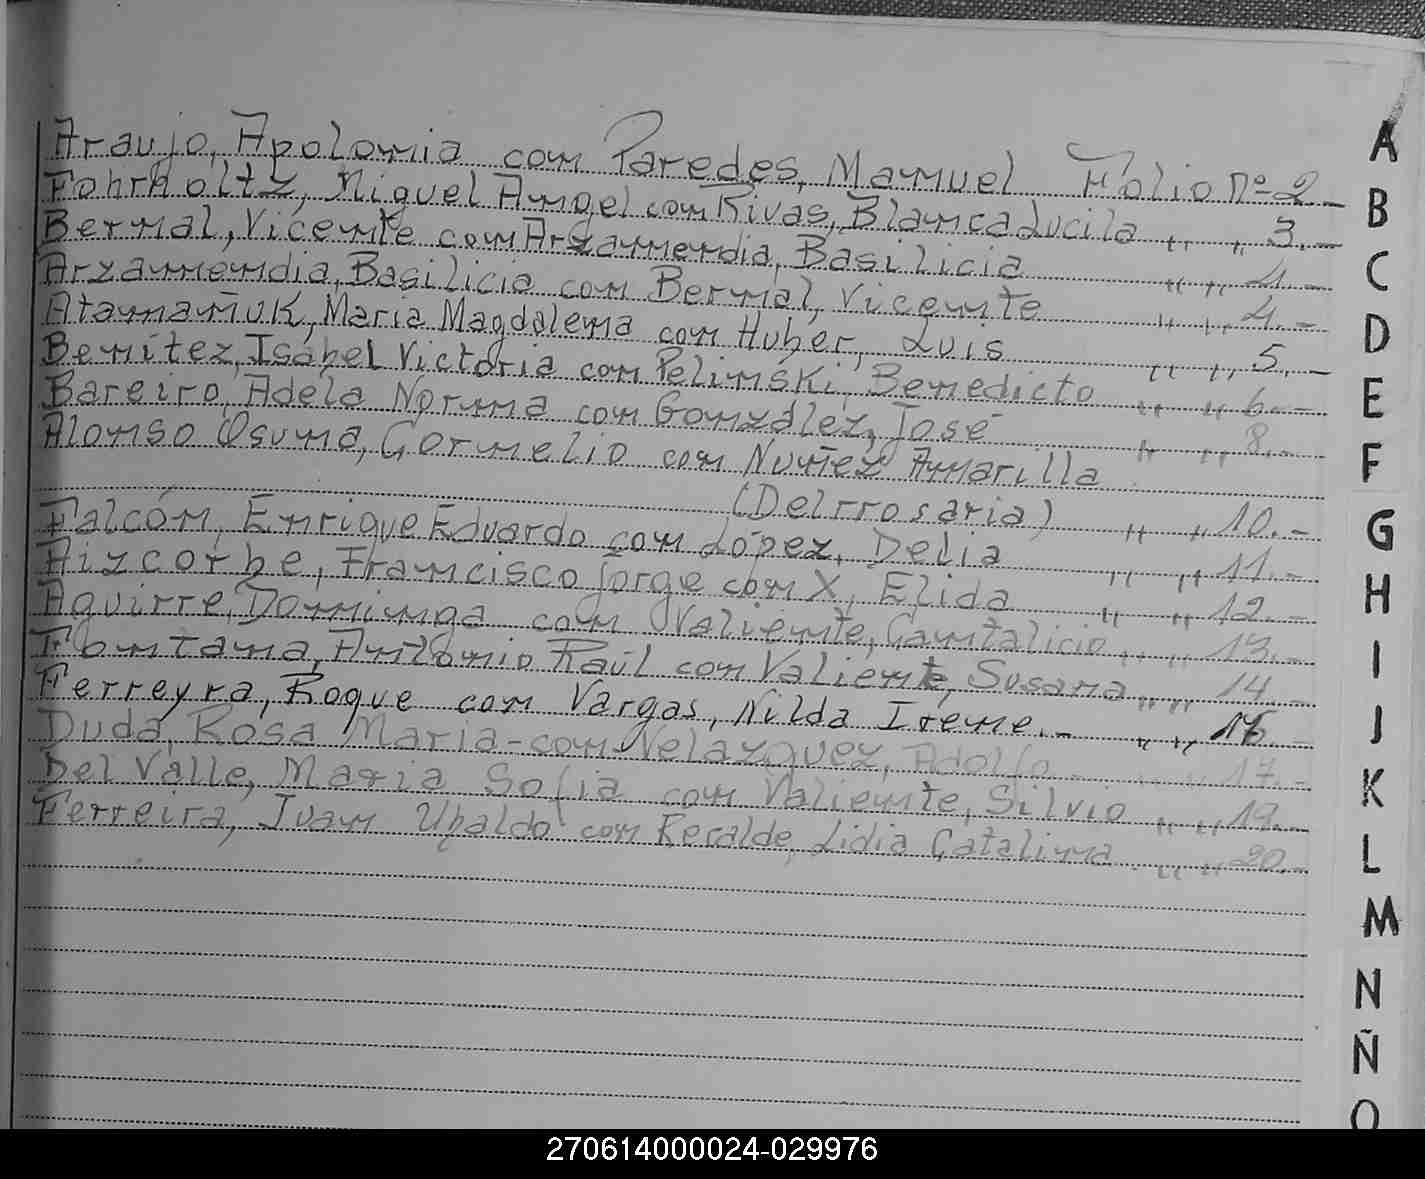 Araujo, Apolonia con Paredes, Manuel Folio nº 2.-
Fohrholtz, Miguel Angel con Rivas, Blanca Lucila " " 3.-
Bernal, Vicente con Arzamendia, Basilicia " " 1.-
Arzamendia, Basilicia con Bernal, Vicente " " 4.-
Atamañuk, Maria Magdalena con Huber, Luis " " 5.-
Benitez, Isabel Victoria con Pelinski, Benedicto " " 6.-
Bareiro, Adela Norma con González, José " " 8.-
Alonso Osuna, Cornelio con Nuñez Amarilla
(Delrrosaria) " " 10.-
Falcón, Enrique Eduardo con López, Delia " " 11.-
Aizcorbe, Francisco Jorge con X, Elida " " 12.-
Aguirre, Dominga con Valiente, Cantalicio " " 13.-
Fontana, Antonio Raúl con Valiente, Susana " " 14.-
Ferreyra, Roque con Vargas, Nilda Irene.- " "
Duda, Rosa Maria - con Velazquez, Adolfo " " 17.-
Del Valle, Maria Sofia con Valiente, Silvio " " 19.-
Ferreira, Juan Ubaldo con Recalde, Lidia Catalina " " 20.-
A
B
C
D
E
F
G
H
I
J
K
L
M
N
Ñ
O
270614000024-029976